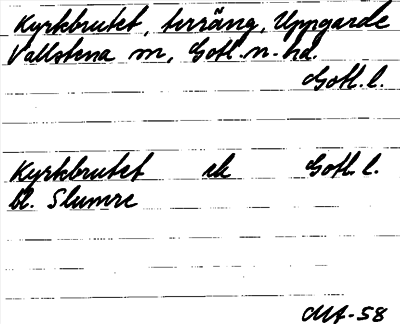 Kyrkbrutet, terräng, Uppgarde
Vallstena sn, Gotl. n. hd.
Gotl. l.
Kyrkbrutet ek Gotl. l.
bl. Slumre
MA-58